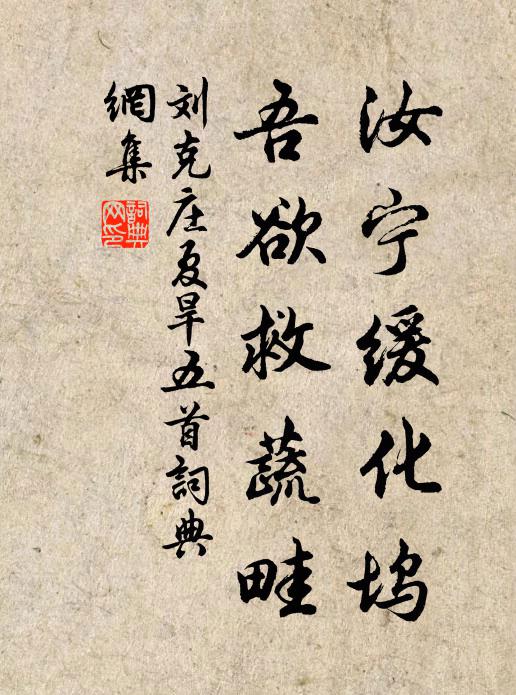 汝宁缓化坞
吾欲救蔬畦
刘克庄夏旱五首詞典
網集
詞典網印